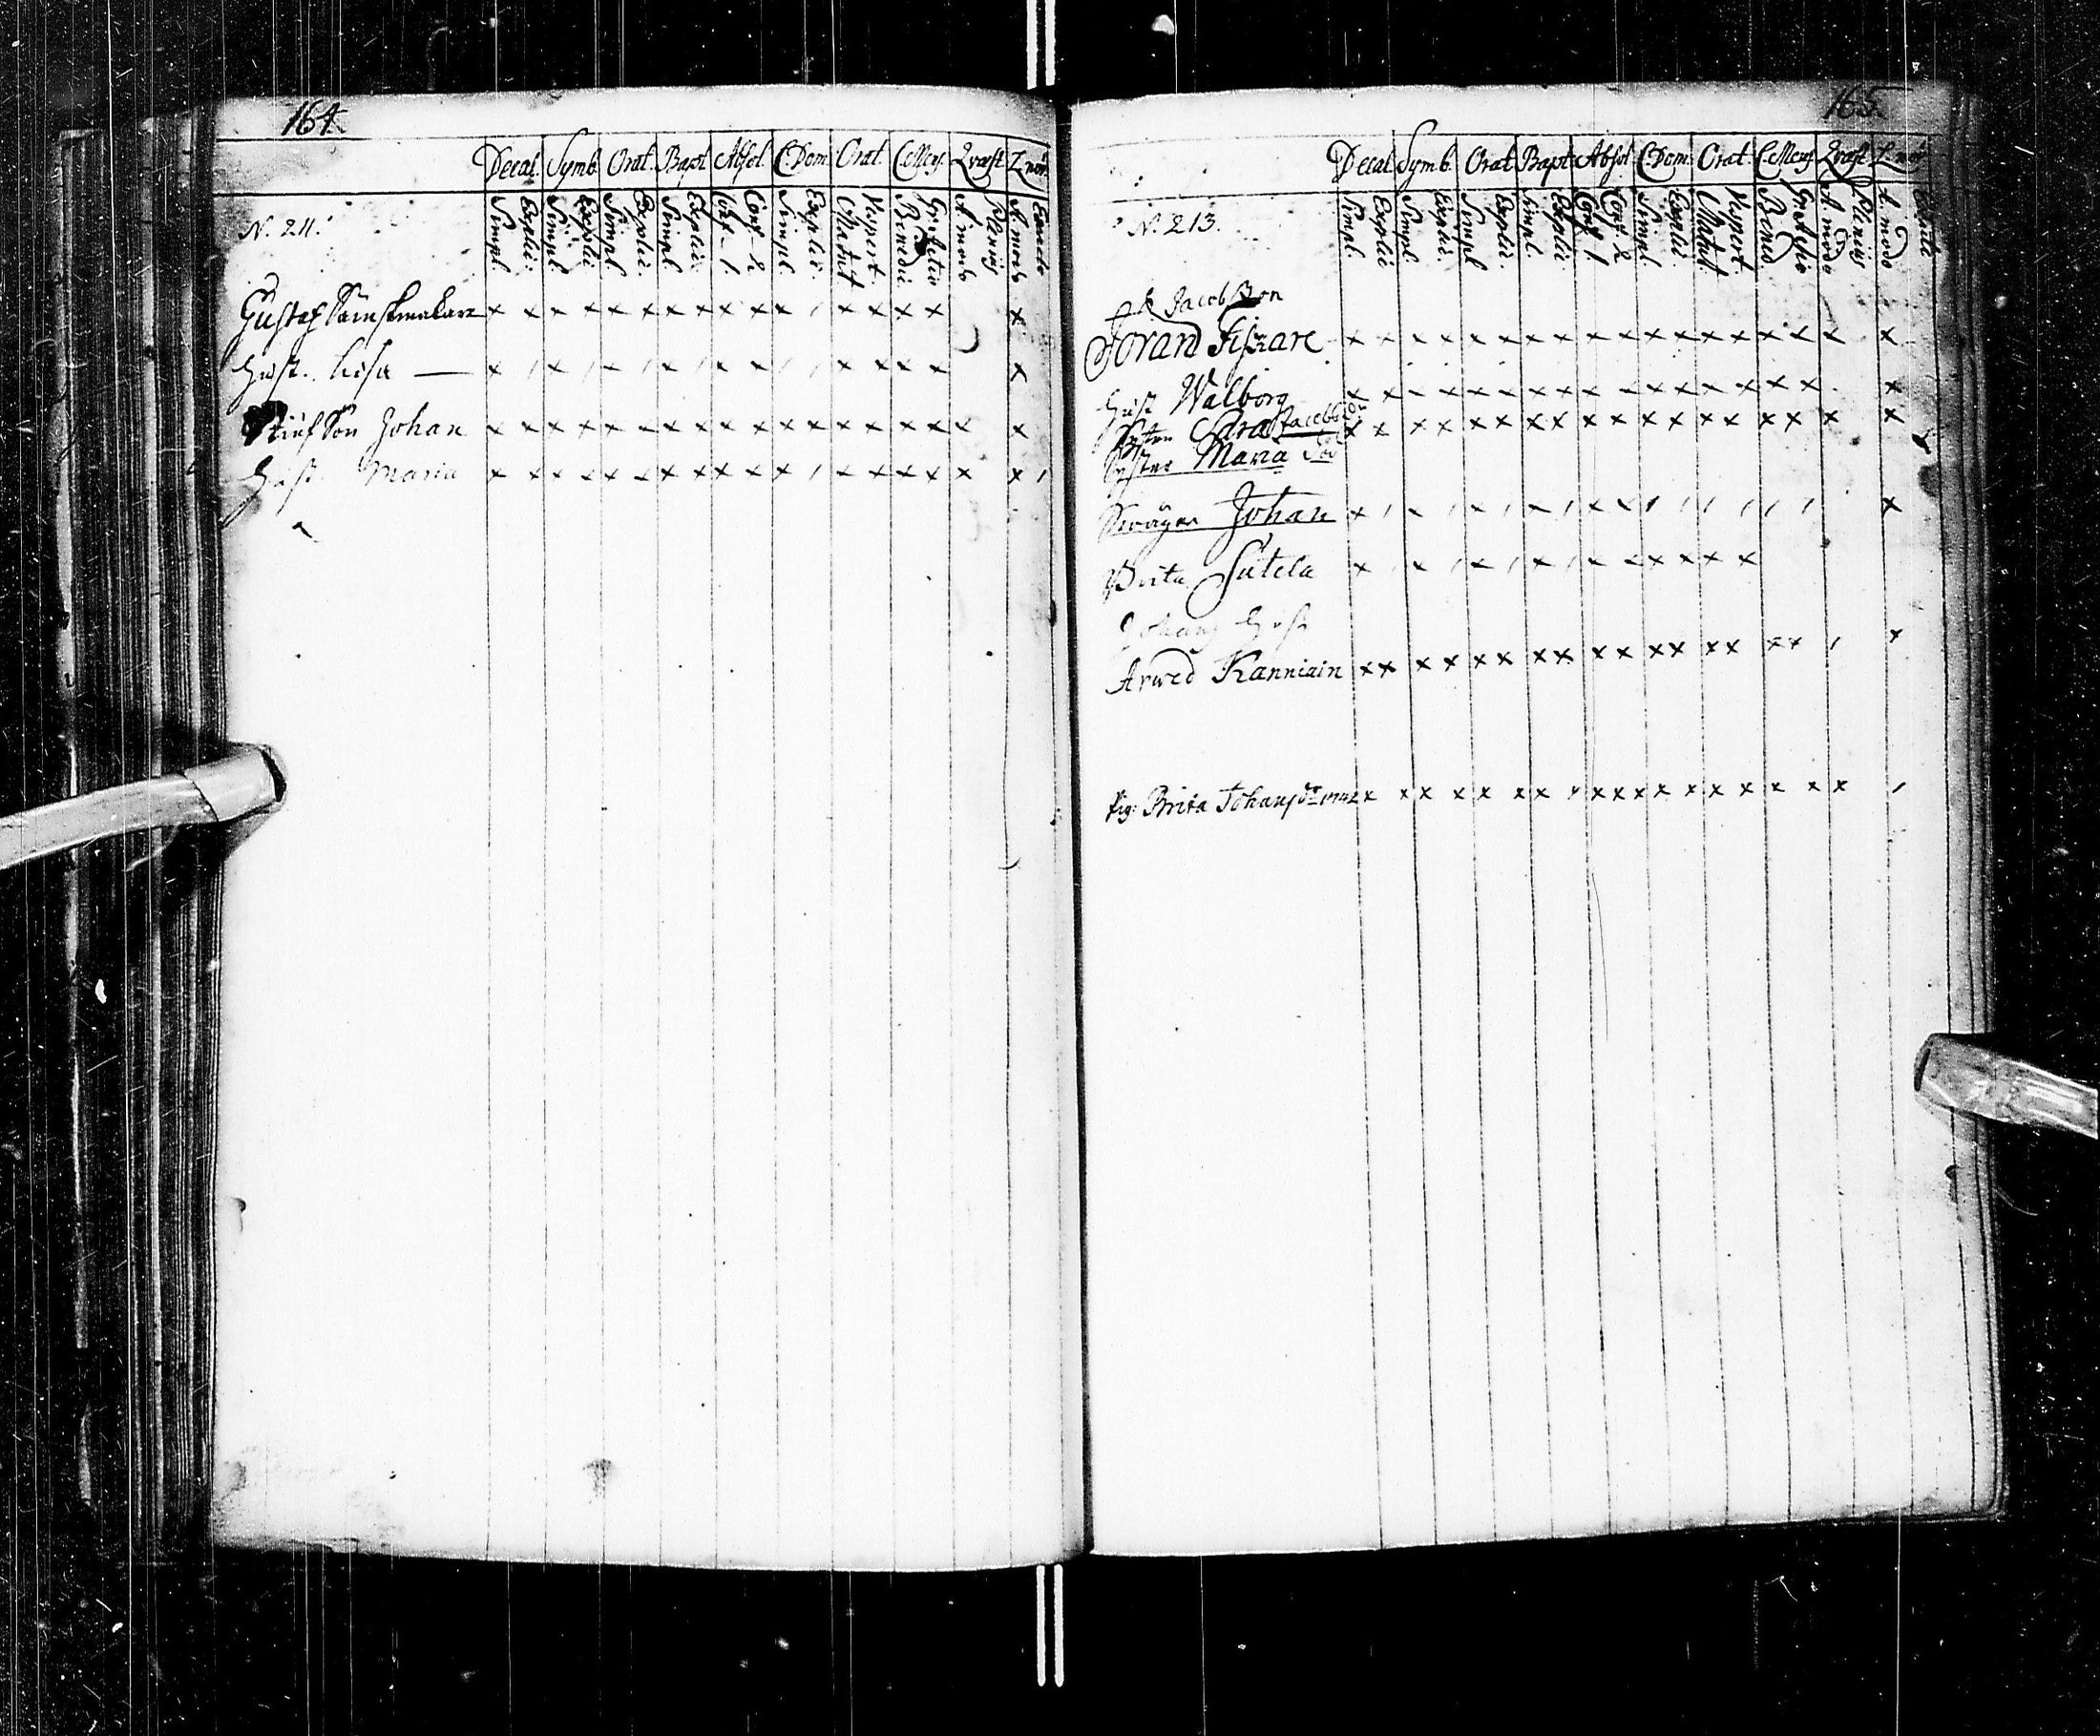 164.
Decal. Symb. Orat. Bapt. Absol. C.Dom. Orat. C.Mens. Quæst. L.nör.
N. 211.
Simpl. Explic. Simpl. Explic. Simpl. Explic. Simpl. Explic. Conf. 1. Conf. 2 Simpl. Explic. Matut. Vespert. Benedic. Gr. Actio A modo Plenius A modo Exacte
Gustaf Sämskmakare x x x x x x x x x x x , x x x x x
Hust. Lisa — x , x , x , x , x x , , x x x x x
Stiuf Son Johan x x x x x x x x x x x x x x x x x x
Hust. Maria x x x x x x x x x x x , x x x x x x ,
165.
Decal. Symb. Orat. Bapt. Absol. C.Dom. Orat. C.Mens. Quæst. L.nör.
N. 213.
Simpl. Explic. Simpl. Explic. Simpl. Explic. Simpl. Explic. Conf. 1 Conf. 2 Simpl. Explic. Matut. Vespert. Bened. Gr. Actio A modo Plenius A modo Exacte
Jacobsson
Jöran Fiskare x x x x x x x x x x x x x x x x x x
Hust. Walborg x x x x x x x x x x x x x x x x x
Syster Sara Jacobsdr x x x x x x x x x x x x x x x x x x
Syster Maria död
Swåger Johan x , x , x , x , x x , , , , , , x
Brita Sutela x , x , x , x , x x x x x x
Johans Hust
Arwed Kanniain x x x x x x x x x x x x x x x x , x
Pig: Brita Johansdr x x x x x x x x x x x x x x x x x ,